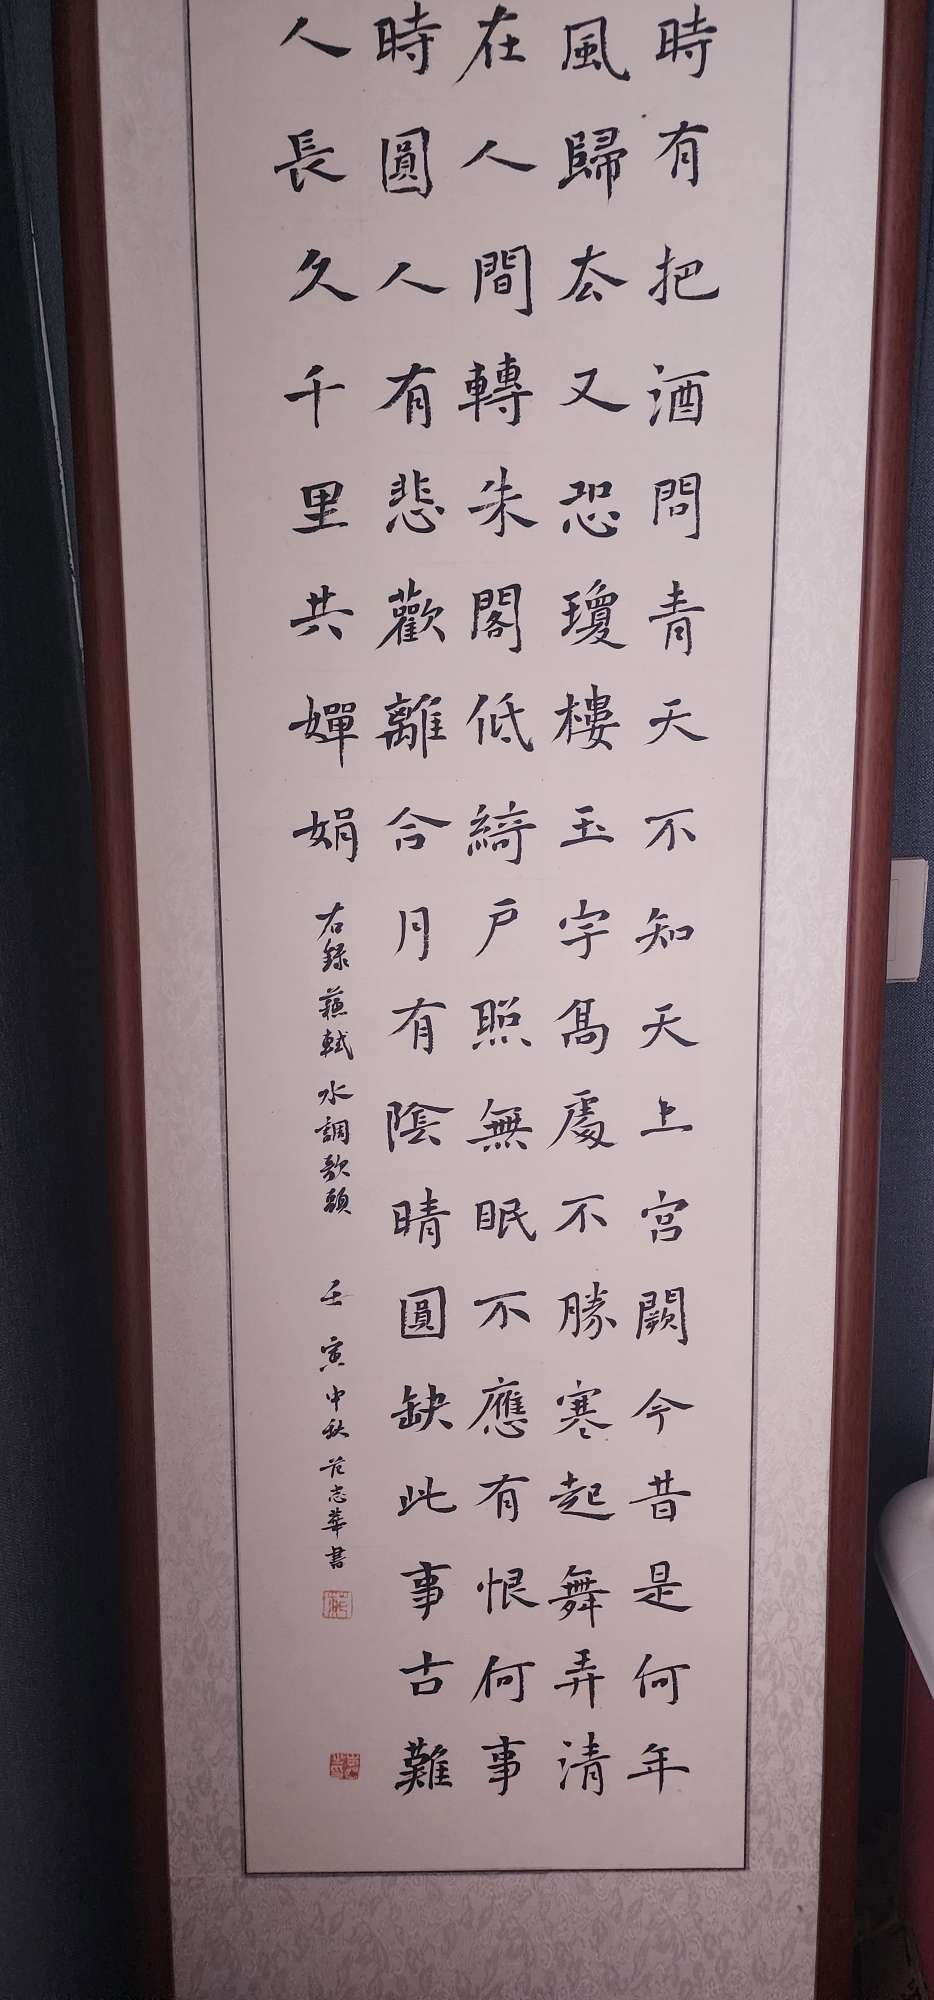 時有把酒問青天不知天上宮闕今昔是何年
風歸去又恐瓊樓玉宇高處不勝寒起舞弄清
在人間轉朱閣低綺戶照無眠不應有恨何事
時圓人有悲歡離合月有陰晴圓缺此事古難
人長久千里共嬋娟
右錄蘇軾水調歌頭 壬寅中秋范志華書